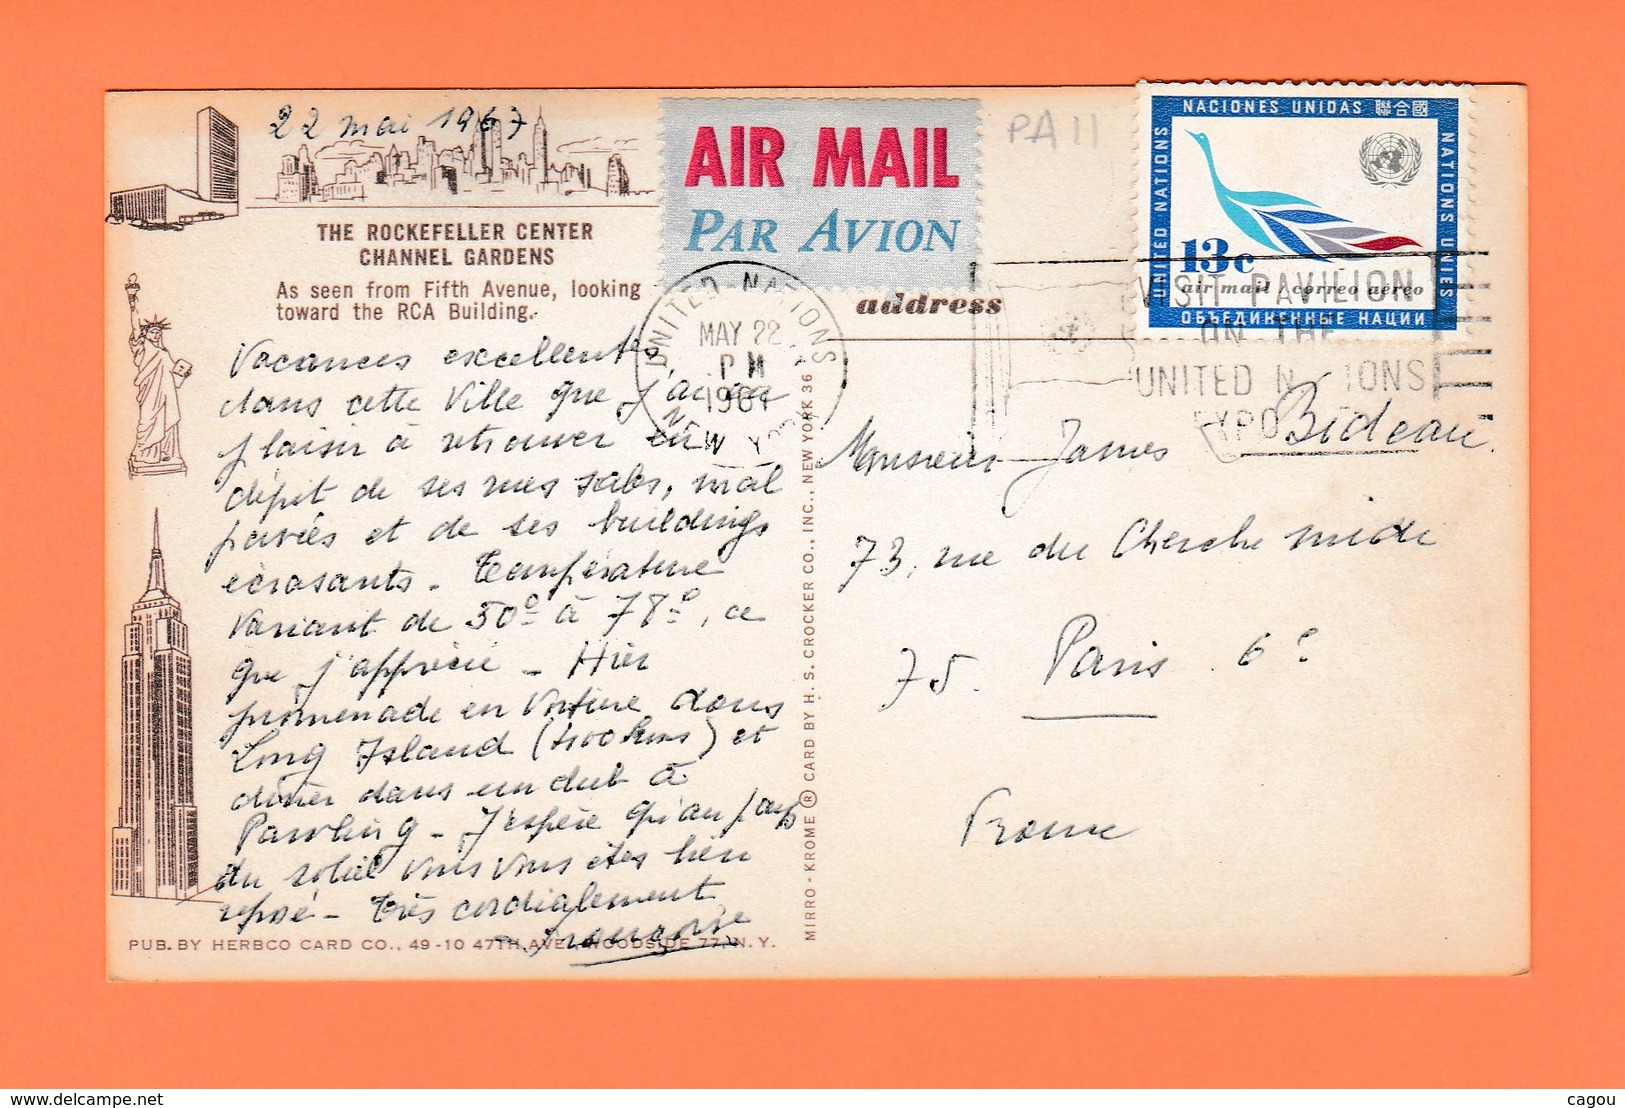 22 mai 1967
THE ROCKEFELLER CENTER
CHANNEL GARDENS
As seen from Fifth Avenue, looking
toward the RCA Building.
Vacances excellentes
dans cette Ville que j'ai eu
plaisir à retrouver en
dépit de ses rues sales, mal
pavées et de ses buildings
écrasants - Température
variant de 50° à 78°, ce
que j'apprécie - Hier
promenade en voiture dans
Long Island (400 kms) et
dîner dans un club à
Pawling - J'espère qu'au pays
du soleil vous vous êtes bien
reposé - Très cordialement
Françoise
PUB. BY HERBCO CARD CO., 49-10 47TH AVE., WOODSIDE 77, N.Y.
AIR MAIL
PAR AVION
address
UNITED NATIONS
MAY 22
PM
1967
NEW YORK
MIRRO-KROME ® CARD BY H. S. CROCKER CO., INC., NEW YORK 36
PA 11
NACIONES UNIDAS 聯合國
UNITED NATIONS
NATIONS UNIES
13c
air mail / correo aéreo
ОБЪЕДИНЕННЫЕ НАЦИИ
VISIT PAVILION
ON THE
UNITED NATIONS
EXPO
Monsieur James Bideau
73, rue du Cherche midi
75. Paris 6e
France
delcampe.net
cagou